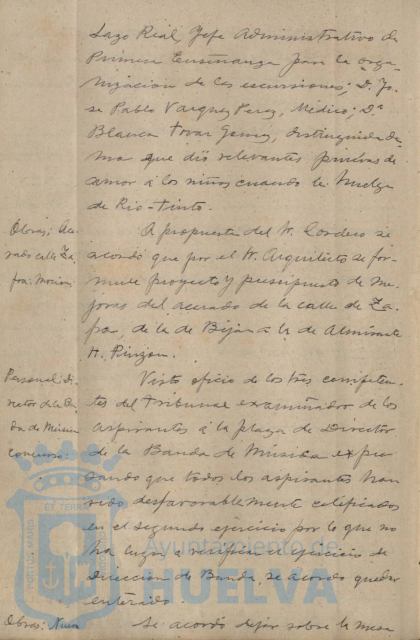 Lazo Real Jefe Administrativo de
Primera Enseñanza para la orga-
nización de las excursiones; Dn. Jo-
se Pablo Vazquez Perez, Médico; Dª
Blanca Tovar Gomez, distinguida da-
ma que dió relevantes pruebas de
amor á los niños cuando la huelga
de Rio-Tinto.
Obras: Ace-
rado calle Za-
fra:
A propuesta del Sr. Cordero se
acordó que por el Sr. Arquitecto se for-
mule proyecto y presupuesto de me-
joras del acerado de la calle de Za-
fra, de la de Béjar a la de Almirante
H. Pinzon.
Personal: Di-
rector de la Ban-
da de Música
concurso:
Visto oficio de los tres competen-
tes del tribunal examinador de los
aspirantes á la plaza de Director
de la Banda de Música expre-
sando que todos los aspirantes han
sido desfavorablemente calificados
en el segundo ejercicio por lo que no
ha lugar a verificar el ejercicio de
Dirección de Banda, se acordó quedar
enterado.
Obras:
Se acordó dejar sobre la mesa
PORTUS MARIS ET TERRAE CUSTODIA
Ayuntamiento de
HUELVA